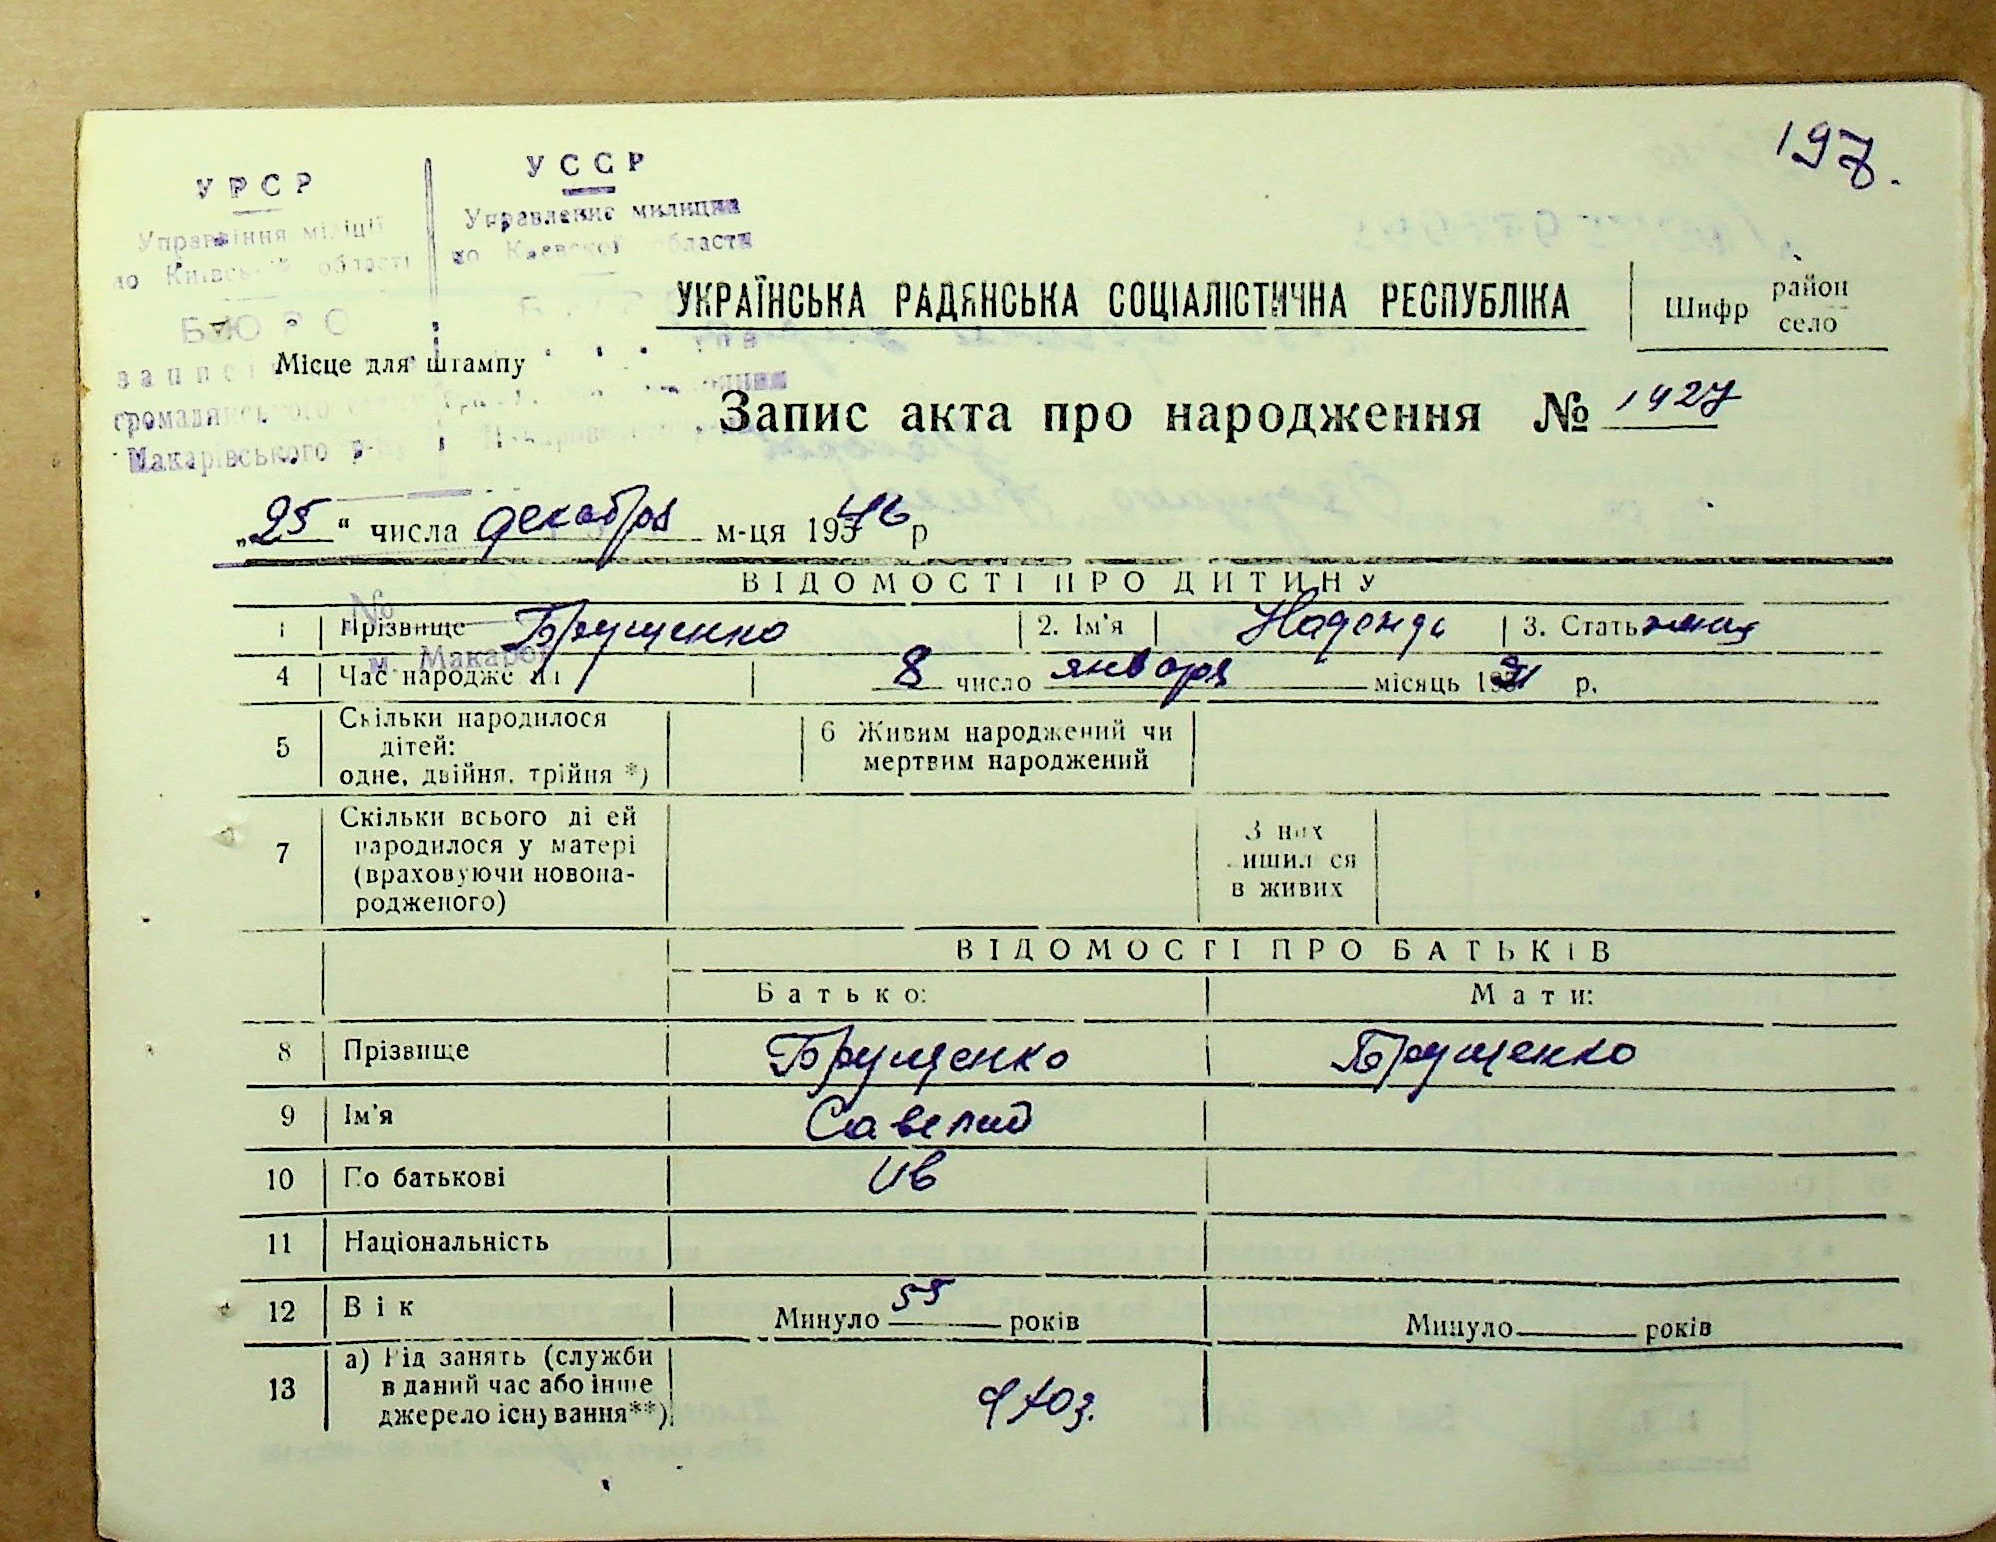 197.
УРСР
Управління міліції
по Київській області
БЮРО
громадянського
Макарівського р-ну
УССР
Управление милиции
по Киевской области
УКРАЇНСЬКА РАДЯНСЬКА СОЦІАЛІСТИЧНА РЕСПУБЛІКА
Шифр район
село
Місце для штампу
Запис акта про народження № 1427
„25“ числа декабря м-ця 1946 р
ВІДОМОСТІ ПРО ДИТИНУ
№
1 Прізвище Брущенко 2. Ім'я Надежда 3. Стать жен
м. Макарів
4 Час народження 8 число января місяць 1931 р.
5 Скільки народилося
дітей:
одне, двійня, трійня *)
6 Живим народжений чи
мертвим народжений
7 Скільки всього дітей
народилося у матері
(враховуючи новона-
родженого)
З них
лишилося
в живих
ВІДОМОСТІ ПРО БАТЬКІВ
Батько: Мати:
8 Прізвище Брущенко Брущенко
9 Ім'я Савелий
10 По батькові Ив
11 Національність
12 Вік Минуло 55 років Минуло років
13 а) Рід занять (служби
в даний час або інше
джерело існування**)